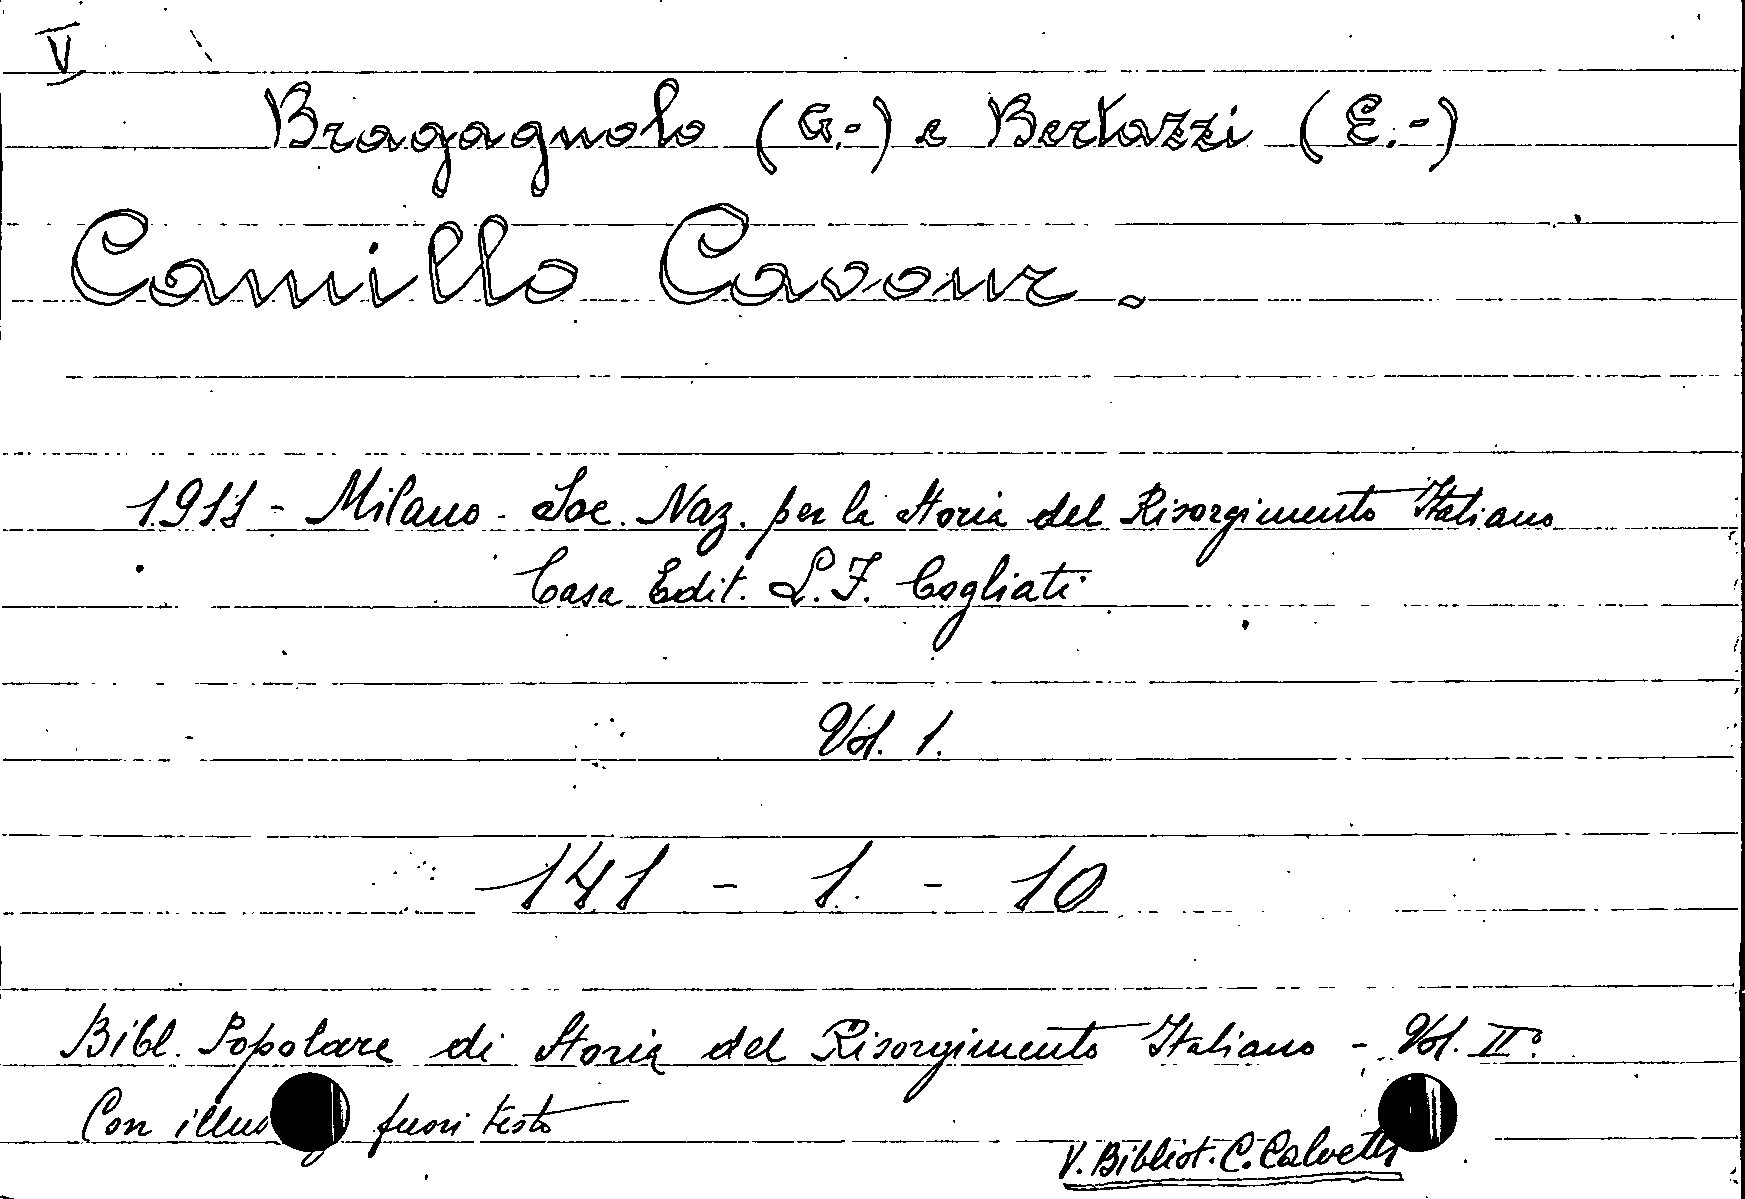 V
Bragagnolo (G.-) e Bertazzi (E.-)
Camillo Cavour.
1911 - Milano - Soc. Naz. per la Storia del Risorgimento Italiano
Casa Edit. L. F. Cogliati
Vol. 1.
141 - 1 - 10
Bibl. Popolare di Storia del Risorgimento Italiano - Vol. II°
Con illus fuori testo
V. Bibliot. C. Calvetti